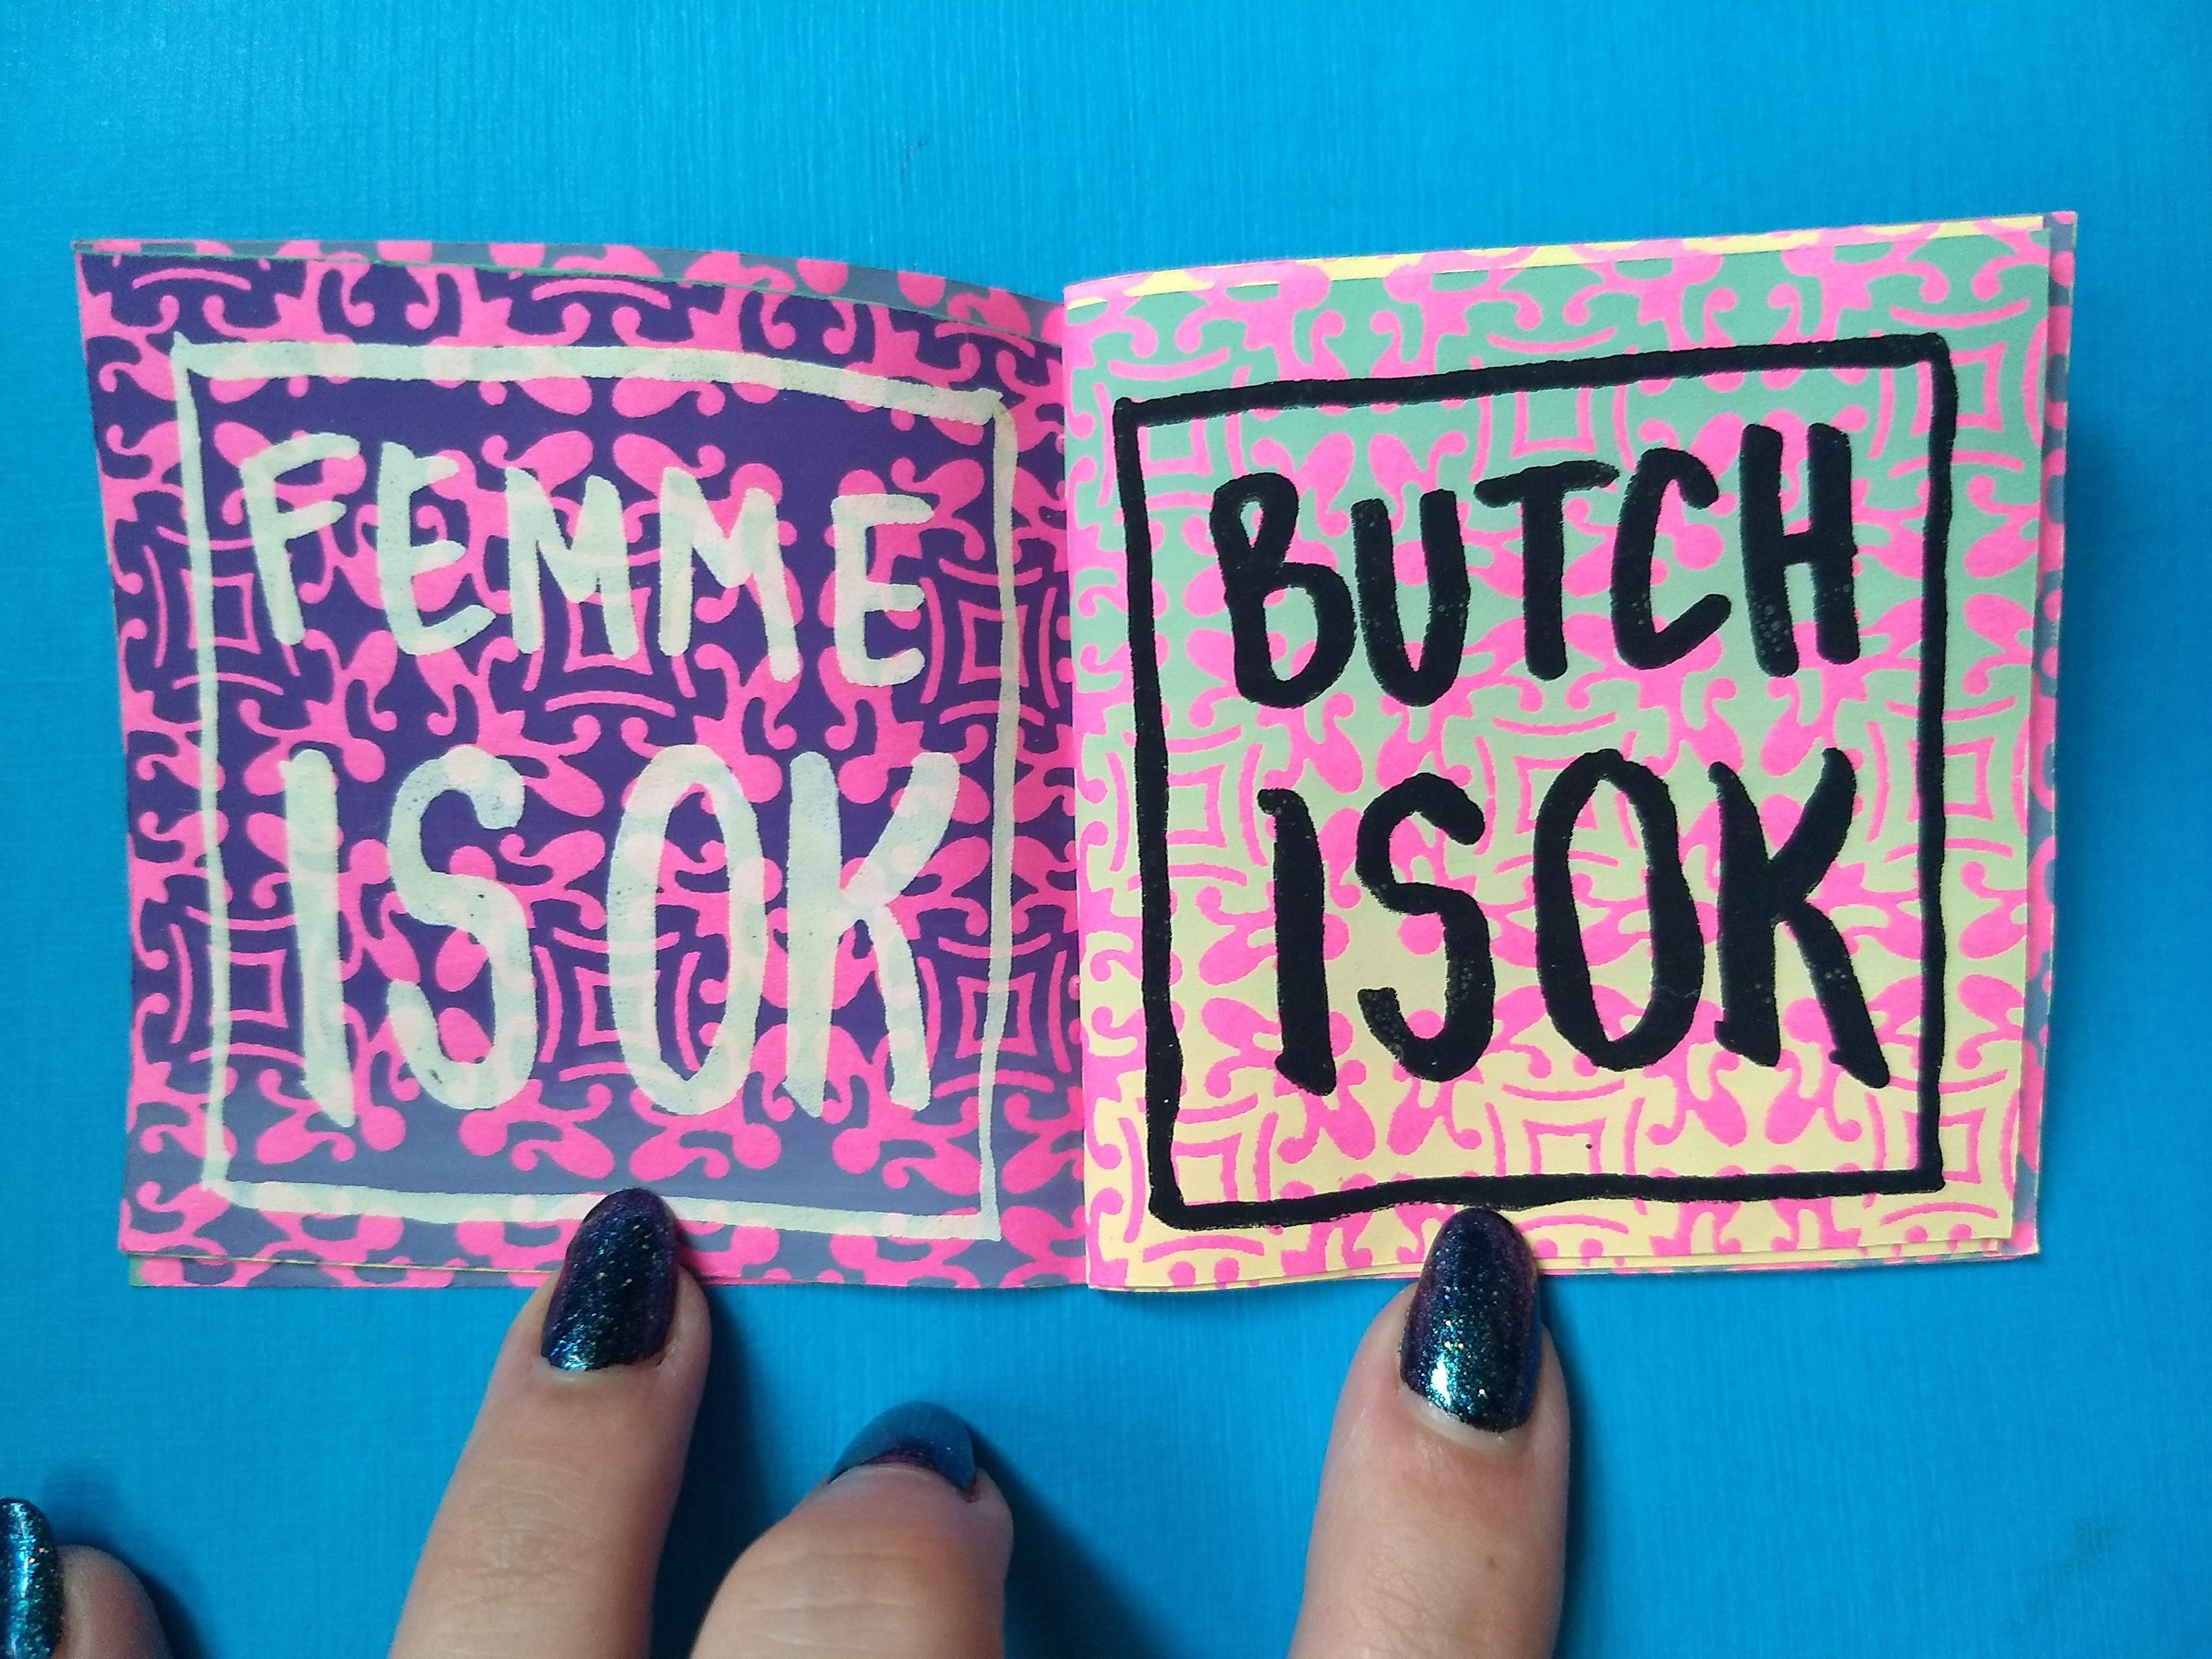 FEMME
IS OK
BUTCH
IS OK